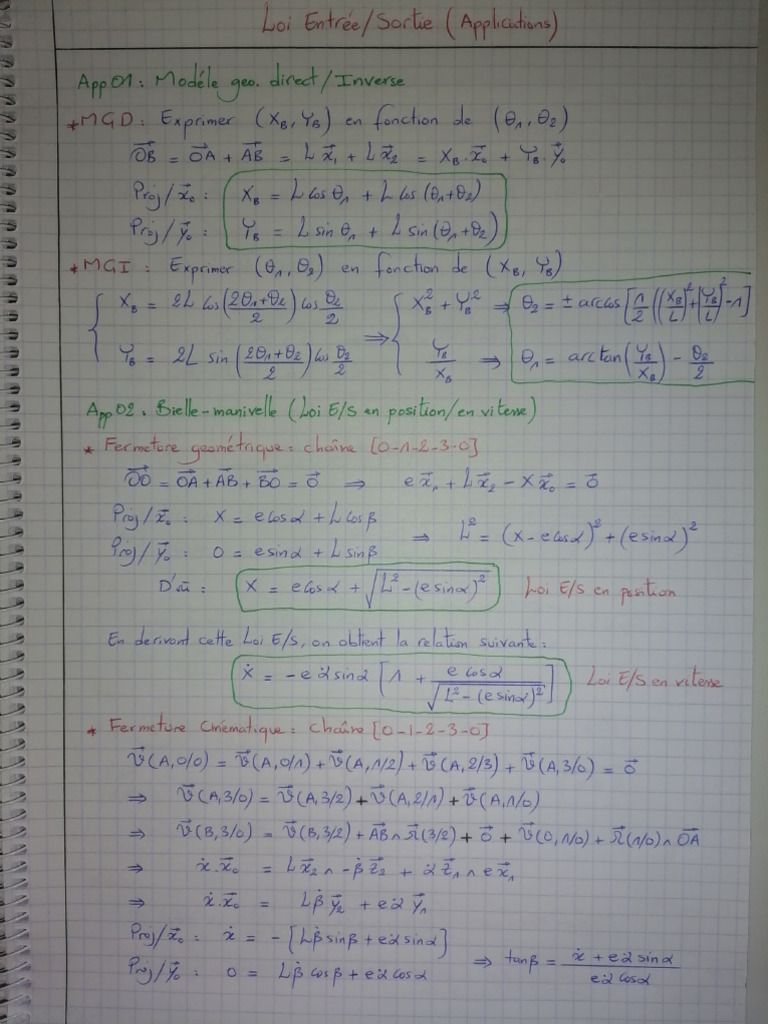 Loi Entrée/Sortie (Applications)
App 01 : Modéle geo. direct / Inverse
* MGD : Exprimer (X_B, Y_B) en fonction de (θ₁, θ₂)
→OB = →OA + →AB = L →x₁ + L →x₂ = X_B . →x₀ + Y_B . →y₀
Proj/→x₀ : X_B = L cos θ₁ + L cos (θ₁+θ₂)
Proj/→y₀ : Y_B = L sin θ₁ + L sin (θ₁+θ₂)
* MGI : Exprimer (θ₁, θ₂) en fonction de (X_B, Y_B)
X_B = 2L cos((2θ₁+θ₂)/2) cos θ₂/2 ⇒ X_B² + Y_B² ⇒ θ₂ = ± arccos [1/2 ((X_B/L)² + (Y_B/L)² - 1]
Y_B = 2L sin ((2θ₁+θ₂)/2) cos θ₂/2 Y_B/X_B ⇒ θ₁ = arctan (Y_B/X_B) - θ₂/2
App 02 : Bielle-manivelle (Loi E/S en position/en vitesse)
* Fermeture geométrique : chaîne [0-1-2-3-0]
→OO = →OA + →AB + →BO = →0 ⇒ e →x₁ + L →x₂ - X →x₀ = →0
Proj/→x₀ : X = e cos α + L cos β
⇒ L² = (X - e cos α)² + (e sin α)²
Proj/→y₀ : 0 = e sin α + L sin β
D'où : X = e cos α + √(L² - (e sin α)²) Loi E/S en position
En derivant cette Loi E/S, on obtient la relation suivante :
ẋ = - e α̇ sin α [1 + e cos α / √(L² - (e sin α)²)] Loi E/S en vitesse
* Fermeture Cinématique : chaîne [0-1-2-3-0]
→V(A,0/0) = →V(A,0/1) + →V(A,1/2) + →V(A,2/3) + →V(A,3/0) = →0
⇒ →V(A,3/0) = →V(A,3/2) + →V(A,2/1) + →V(A,1/0)
⇒ →V(B,3/0) = →V(B,3/2) + →AB ∧ →Ω(3/2) + →0 + →V(O,1/0) + →Ω(1/0) ∧ →OA
⇒ ẋ . →x₀ = L →x₂ ∧ - β̇ →z₂ + α̇ →z₁ ∧ e →x₁
⇒ ẋ . →x₀ = L β̇ →y₂ + e α̇ →y₁
Proj/→x₀ : ẋ = - [L β̇ sin β + e α̇ sin α]
⇒ tan β = (ẋ + e α̇ sin α) / (e α̇ cos α)
Proj/→y₀ : 0 = L β̇ cos β + e α̇ cos α